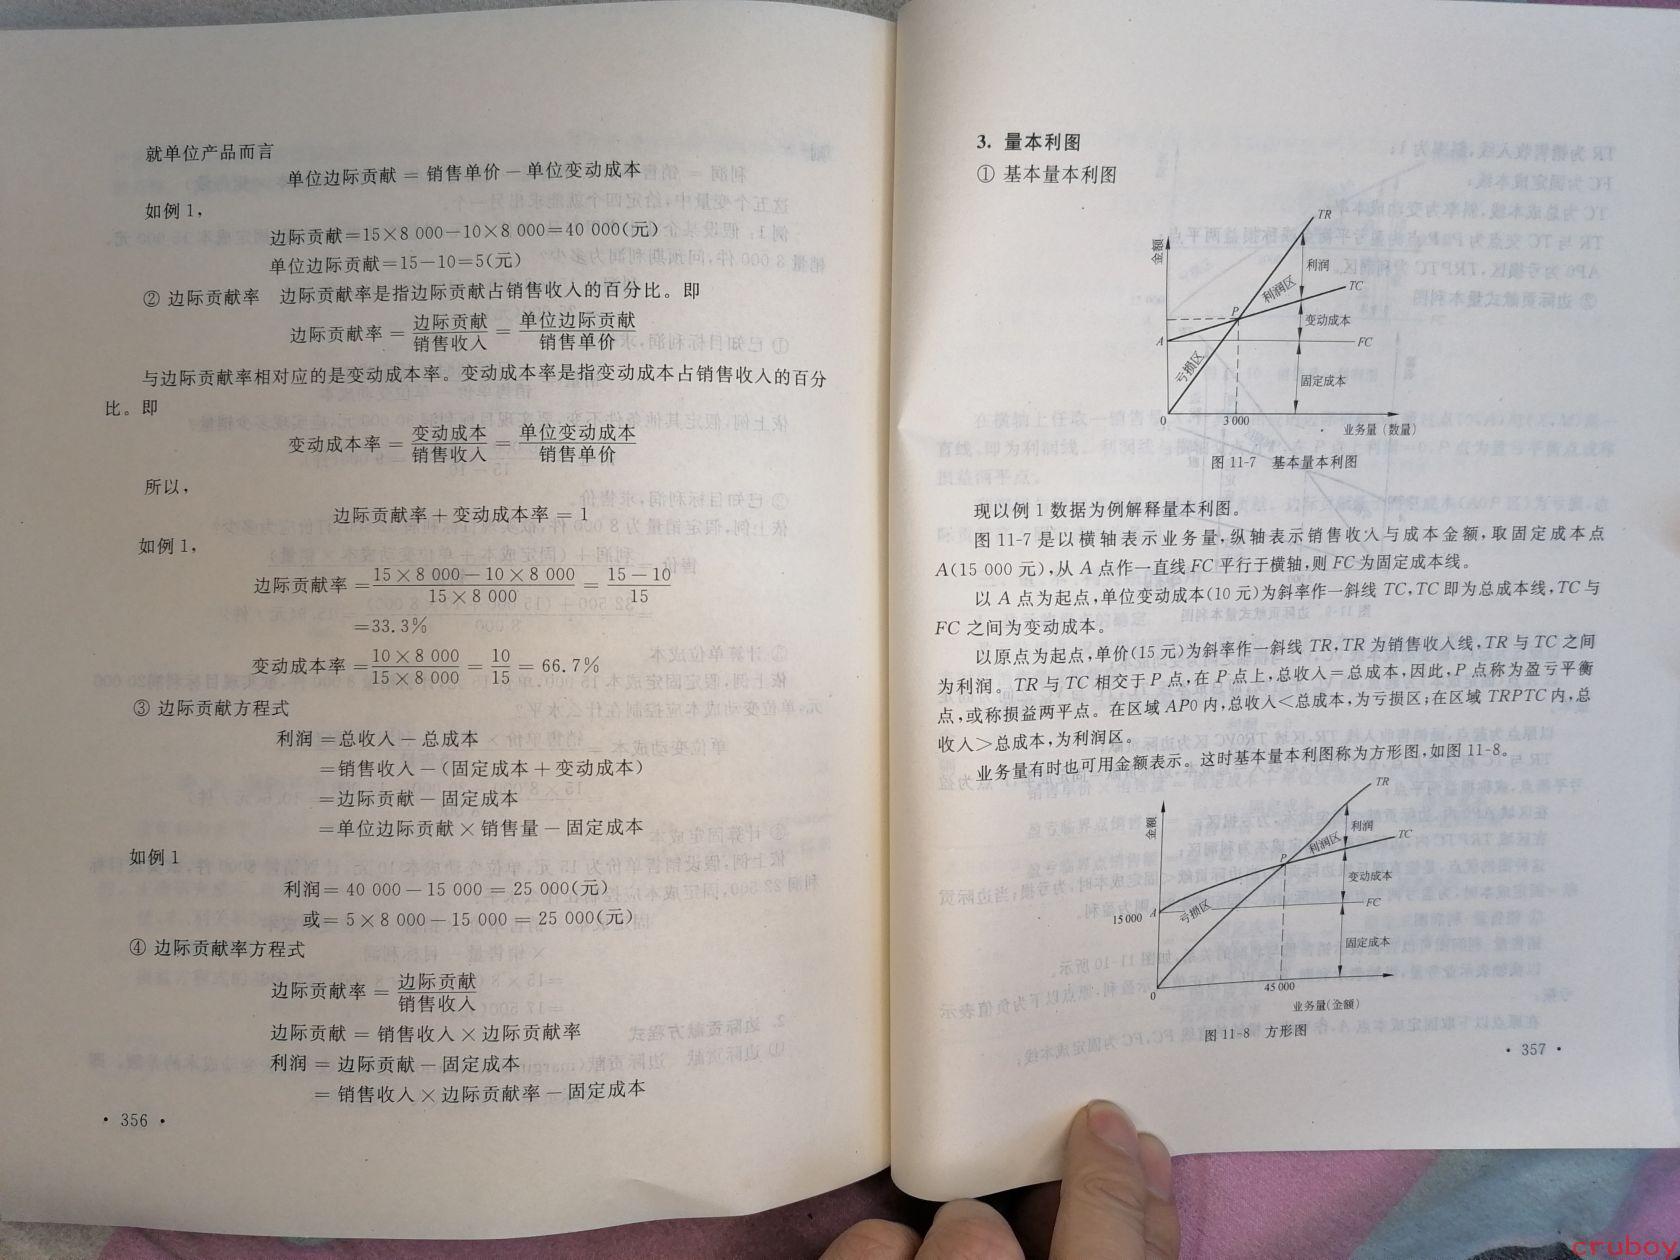 就单位产品而言
单位边际贡献 = 销售单价 - 单位变动成本
如例 1,
边际贡献=15×8 000-10×8 000=40 000(元)
单位边际贡献=15-10=5(元)
② 边际贡献率 边际贡献率是指边际贡献占销售收入的百分比。即
边际贡献率 = 边际贡献/销售收入 = 单位边际贡献/销售单价
与边际贡献率相对应的是变动成本率。变动成本率是指变动成本占销售收入的百分
比。即
变动成本率 = 变动成本/销售收入 = 单位变动成本/销售单价
所以,
边际贡献率+变动成本率=1
如例 1,
边际贡献率 = 15×8 000-10×8 000/15×8 000 = 15-10/15
=33.3%
变动成本率 = 10×8 000/15×8 000 = 10/15 = 66.7%
③ 边际贡献方程式
利润 =总收入-总成本
=销售收入-(固定成本+变动成本)
=边际贡献-固定成本
=单位边际贡献×销售量-固定成本
如例 1
利润= 40 000-15 000=25 000(元)
或= 5×8 000-15 000=25 000(元)
④ 边际贡献率方程式
边际贡献率 = 边际贡献/销售收入
边际贡献 = 销售收入×边际贡献率
利润 = 边际贡献-固定成本
= 销售收入×边际贡献率-固定成本
· 356 ·
3. 量本利图
① 基本量本利图
TR
金额
利润
利润区
TC
P
变动成本
A
FC
亏损区
固定成本
0
3 000
业务量(数量)
图 11-7 基本量本利图
现以例 1 数据为例解释量本利图。
图 11-7 是以横轴表示业务量,纵轴表示销售收入与成本金额,取固定成本点
A(15 000 元),从 A 点作一直线 FC 平行于横轴,则 FC 为固定成本线。
以 A 点为起点,单位变动成本(10 元)为斜率作一斜线 TC,TC 即为总成本线,TC 与
FC 之间为变动成本。
以原点为起点,单价(15 元)为斜率作一斜线 TR,TR 为销售收入线,TR 与 TC 之间
为利润。TR 与 TC 相交于 P 点,在 P 点上,总收入=总成本,因此,P 点称为盈亏平衡
点,或称损益两平点。在区域 AP0 内,总收入<总成本,为亏损区;在区域 TRPTC 内,总
收入>总成本,为利润区。
业务量有时也可用金额表示。这时基本量本利图称为方形图,如图 11-8。
TR
金额
利润
利润区
TC
P
变动成本
15 000
A
亏损区
FC
固定成本
0
45 000
业务量(金额)
图 11-8 方形图
· 357 ·
cruboy